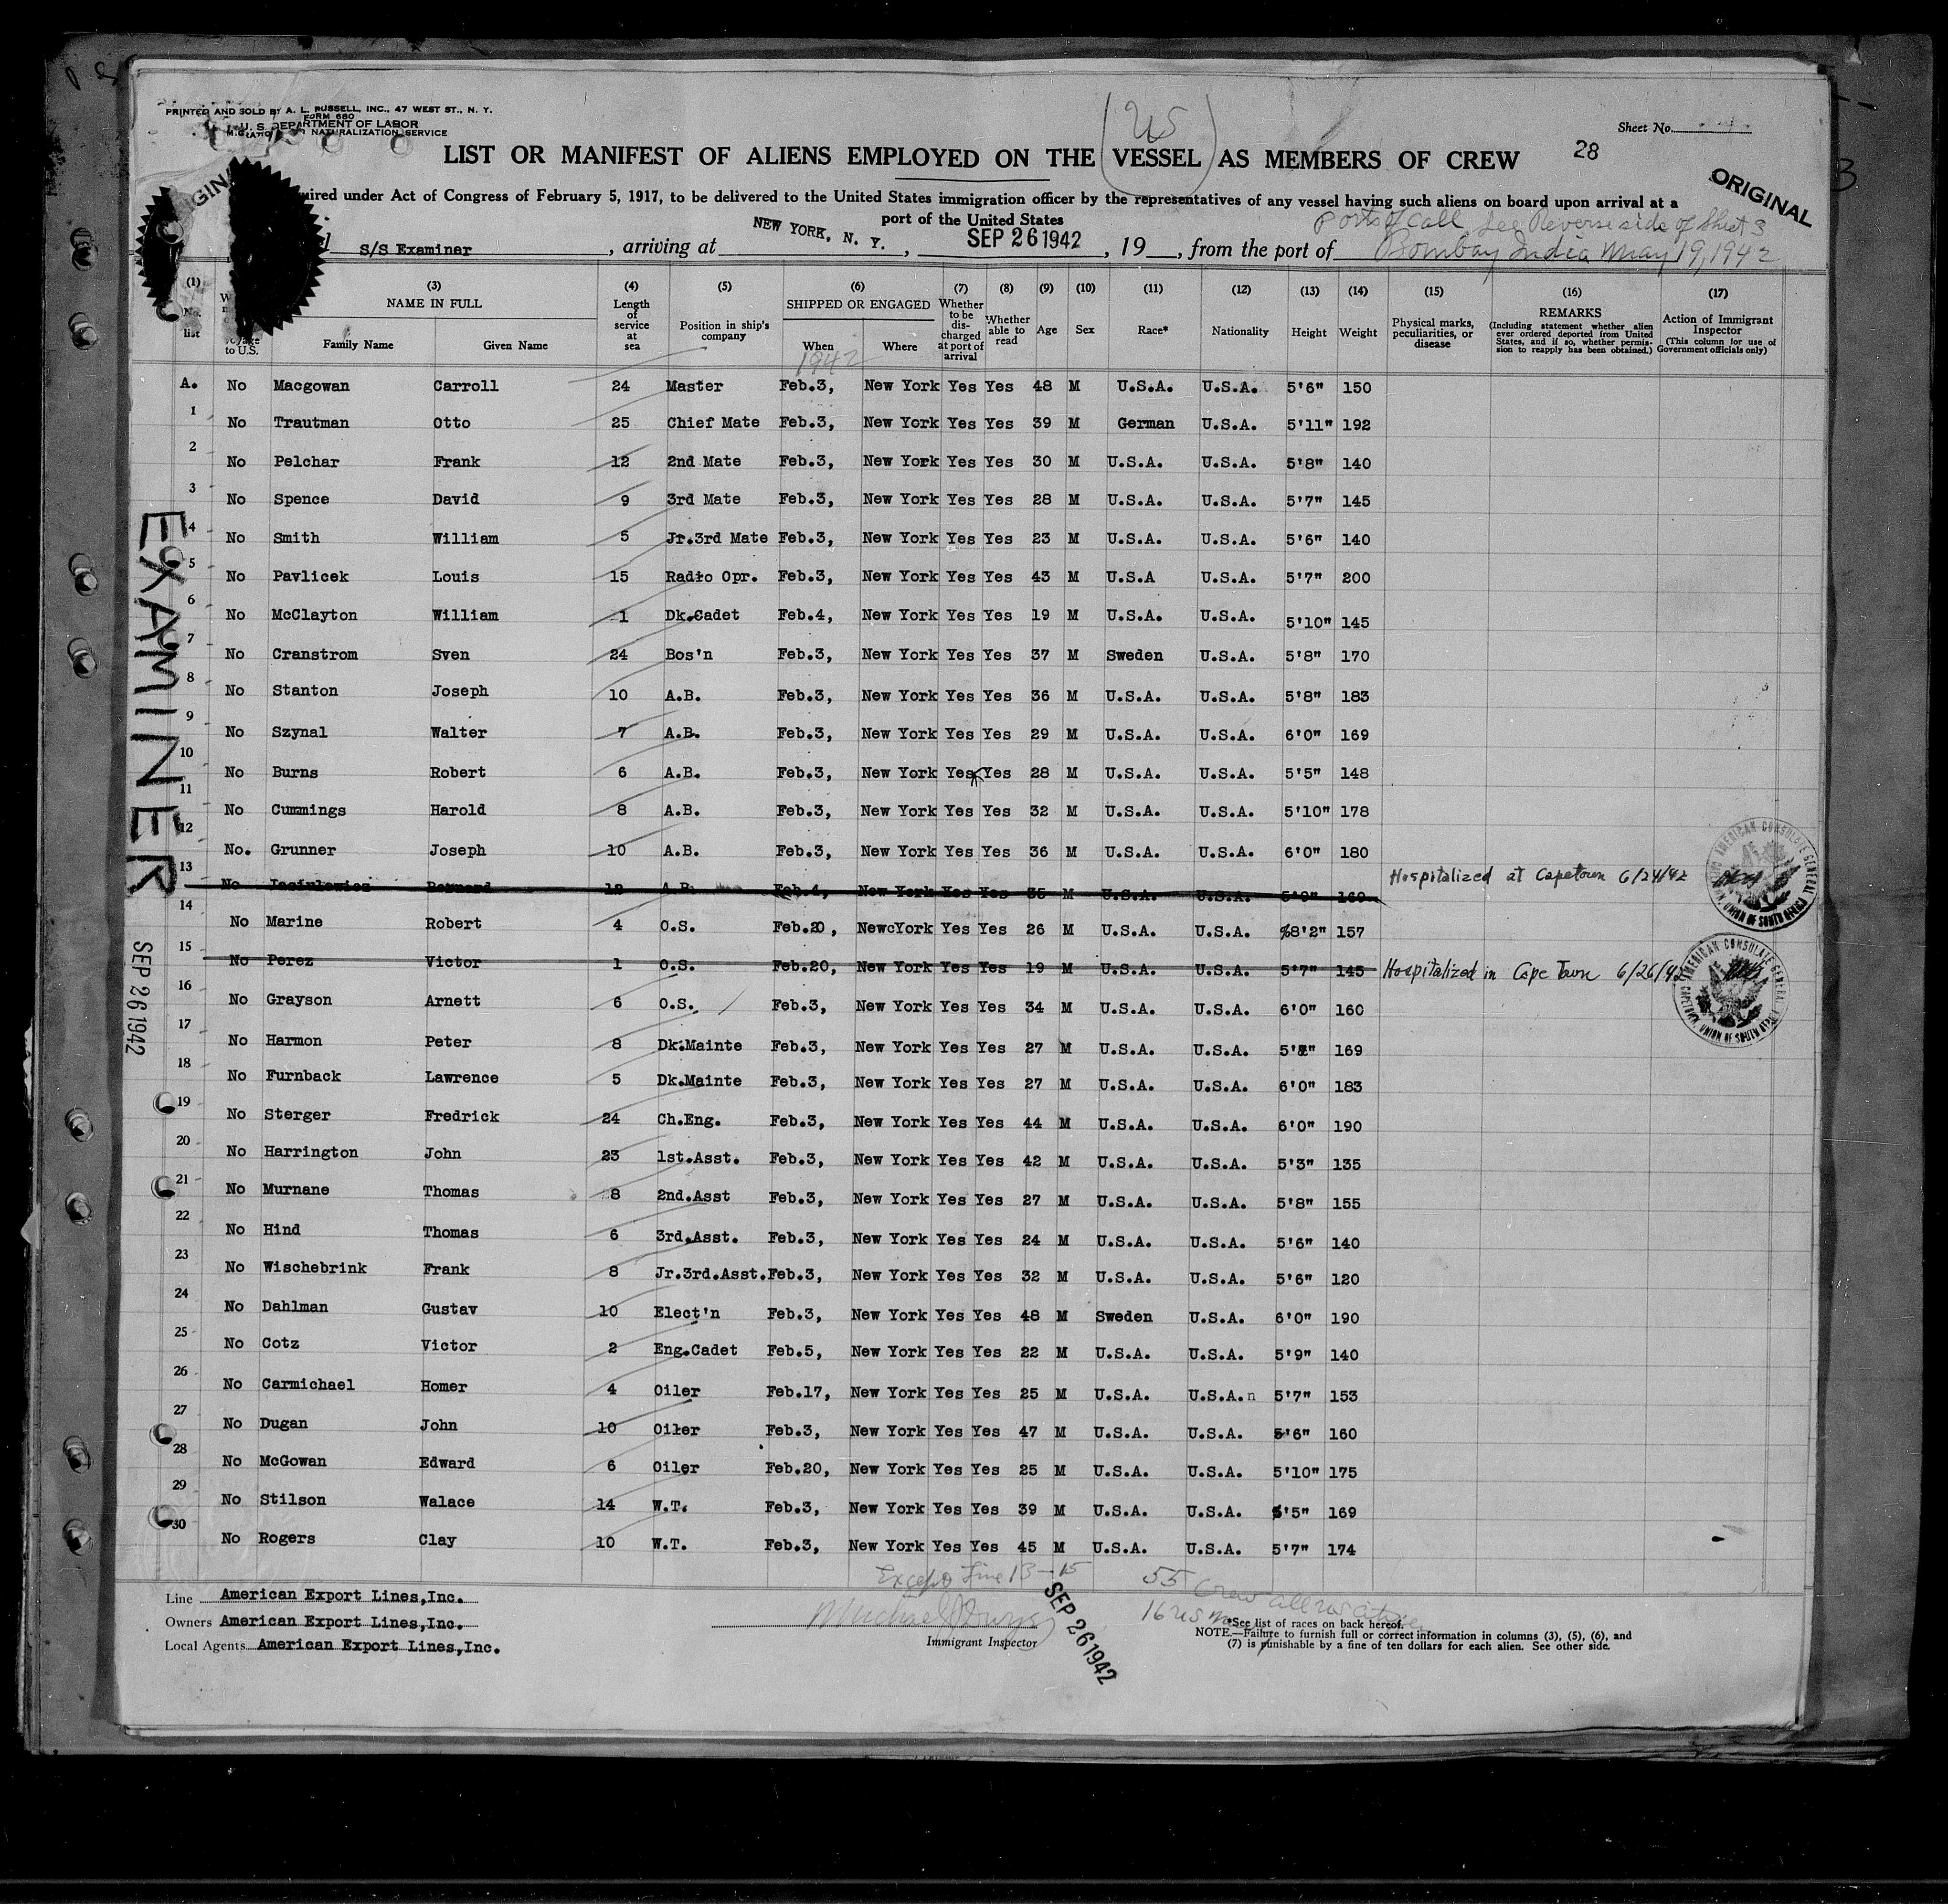 PRINTED AND SOLD BY A. L. RUSSELL, INC., 47 WEST ST., N. Y.
FORM 680
U. S. DEPARTMENT OF LABOR
NATURALIZATION SERVICE
Sheet No.
(US)
28
LIST OR MANIFEST OF ALIENS EMPLOYED ON THE VESSEL AS MEMBERS OF CREW
ORIGINAL
uired under Act of Congress of February 5, 1917, to be delivered to the United States immigration officer by the representatives of any vessel having such aliens on board upon arrival at a
port of the United States
Ports of Call See Reverse side of Sheet 3
S/S Examiner, arriving at NEW YORK, N. Y., SEP 26 1942, 19, from the port of Bombay India May 19, 1942
(1) (3) (4) (5) (6) (7) (8) (9) (10) (11) (12) (13) (14) (15) (16) (17)
No. list
to U.S.
NAME IN FULL
Family Name Given Name
Length of service at sea
Position in ship's company
SHIPPED OR ENGAGED
When Where
1942
Whether to be discharged at port of arrival
Whether able to read
Age Sex Race* Nationality Height Weight
Physical marks, peculiarities, or disease
REMARKS
(Including statement whether alien ever ordered deported from United States, and if so, whether permission to reapply has been obtained.)
Action of Immigrant Inspector
(This column for use of Government officials only)
A. No Macgowan Carroll 24 Master Feb.3, New York Yes Yes 48 M U.S.A. U.S.A. 5'6" 150
1 No Trautman Otto 25 Chief Mate Feb.3, New York Yes Yes 39 M German U.S.A. 5'11" 192
2 No Pelchar Frank 12 2nd Mate Feb.3, New York Yes Yes 30 M U.S.A. U.S.A. 5'8" 140
3 No Spence David 9 3rd Mate Feb.3, New York Yes Yes 28 M U.S.A. U.S.A. 5'7" 145
4 No Smith William 5 Jr.3rd Mate Feb.3, New York Yes Yes 23 M U.S.A. U.S.A. 5'6" 140
5 No Pavlicek Louis 15 Radio Opr. Feb.3, New York Yes Yes 43 M U.S.A U.S.A. 5'7" 200
6 No McClayton William 1 Dk.Cadet Feb.4, New York Yes Yes 19 M U.S.A. U.S.A. 5'10" 145
7 No Cranstrom Sven 24 Bos'n Feb.3, New York Yes Yes 37 M Sweden U.S.A. 5'8" 170
8 No Stanton Joseph 10 A.B. Feb.3, New York Yes Yes 36 M U.S.A. U.S.A. 5'8" 183
9 No Szynal Walter 7 A.B. Feb.3, New York Yes Yes 29 M U.S.A. U.S.A. 6'0" 169
10 No Burns Robert 6 A.B. Feb.3, New York Yes Yes 28 M U.S.A. U.S.A. 5'5" 148
11 No Cummings Harold 8 A.B. Feb.3, New York Yes Yes 32 M U.S.A. U.S.A. 5'10" 178
12 No. Grunner Joseph 10 A.B. Feb.3, New York Yes Yes 36 M U.S.A. U.S.A. 6'0" 180
13 No A.B. Feb.4, New York Yes Yes 35 M U.S.A. U.S.A. 169 Hospitalized at Capetown 6/24/42
14 No Marine Robert 4 O.S. Feb.20, NewcYork Yes Yes 26 M U.S.A. U.S.A. 157
15 No Perez Victor 1 O.S. Feb.20, New York Yes Yes 19 M U.S.A. U.S.A. 5'7" 145 Hospitalized in Cape Town 6/26/42
16 No Grayson Arnett 6 O.S. Feb.3, New York Yes Yes 34 M U.S.A. U.S.A. 6'0" 160
17 No Harmon Peter 8 Dk.Mainte Feb.3, New York Yes Yes 27 M U.S.A. U.S.A. 169
18 No Furnback Lawrence 5 Dk.Mainte Feb.3, New York Yes Yes 27 M U.S.A. U.S.A. 6'0" 183
19 No Sterger Fredrick 24 Ch.Eng. Feb.3, New York Yes Yes 44 M U.S.A. U.S.A. 6'0" 190
20 No Harrington John 23 1st.Asst. Feb.3, New York Yes Yes 42 M U.S.A. U.S.A. 5'3" 135
21 No Murnane Thomas 8 2nd.Asst Feb.3, New York Yes Yes 27 M U.S.A. U.S.A. 5'8" 155
22 No Hind Thomas 6 3rd.Asst. Feb.3, New York Yes Yes 24 M U.S.A. U.S.A. 5'6" 140
23 No Wischebrink Frank 8 Jr.3rd.Asst. Feb.3, New York Yes Yes 32 M U.S.A. U.S.A. 5'6" 120
24 No Dahlman Gustav 10 Elect'n Feb.3, New York Yes Yes 48 M Sweden U.S.A. 6'0" 190
25 No Cotz Victor 2 Eng.Cadet Feb.5, New York Yes Yes 22 M U.S.A. U.S.A. 5'9" 140
26 No Carmichael Homer 4 Oiler Feb.17, New York Yes Yes 25 M U.S.A. U.S.A.n 5'7" 153
27 No Dugan John 10 Oiler Feb.3, New York Yes Yes 47 M U.S.A. U.S.A. 5'6" 160
28 No McGowan Edward 6 Oiler Feb.20, New York Yes Yes 25 M U.S.A. U.S.A. 5'10" 175
29 No Stilson Walace 14 W.T. Feb.3, New York Yes Yes 39 M U.S.A. U.S.A. 169
30 No Rogers Clay 10 W.T. Feb.3, New York Yes Yes 45 M U.S.A. U.S.A. 5'7" 174
EXAMINER
SEP 26 1942
AMERICAN CONSULATE GENERAL
UNION OF SOUTH AFRICA
AMERICAN CONSULATE GENERAL
UNION OF SOUTH AFRICA
Except Line 13-15
55 Crew all US
16 US
Line American Export Lines,Inc.
Owners American Export Lines,Inc.
Local Agents American Export Lines,Inc.
Immigrant Inspector
SEP 26 1942
*See list of races on back hereof.
NOTE.—Failure to furnish full or correct information in columns (3), (5), (6), and
(7) is punishable by a fine of ten dollars for each alien. See other side.